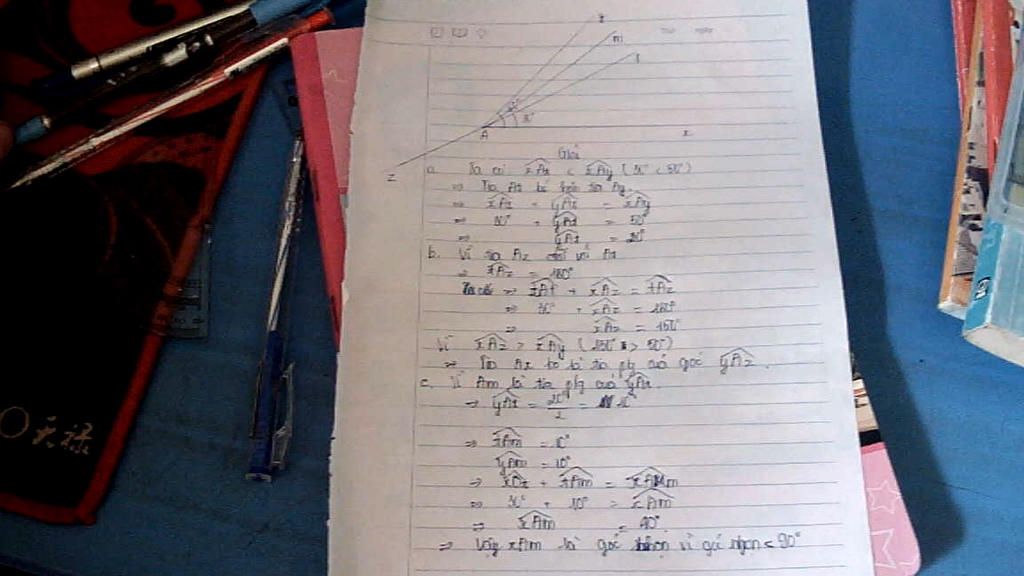 y
m
t
30°
A
x
z
Giải
a. Ta có xAt < xAy (30° < 50°)
⇒ Tia At
⇒ xAt + yAt = xAy
⇒ 30° + yAt = 50°
⇒ yAt = 20°
b. Vì tia Az đối với At
⇒ tAz = 180°
⇒ xAt + xAz = tAz
⇒ 30° + xAz = 180°
⇒ xAz = 150°
Vì xAz > xAy (150° > 50°)
⇒ Tia là tia p/g của góc yAz.
c. Vì Am là tia p/g của yAt.
⇒ yAt = 20°/2 = 10°
⇒ tAm = 10°
yAm = 10°
⇒ xAt + tAm = xAm
⇒ 30° + 10° = xAm
⇒ xAm = 40°
⇒ Vậy xAm là góc nhọn vì góc nhọn < 90°
天禄